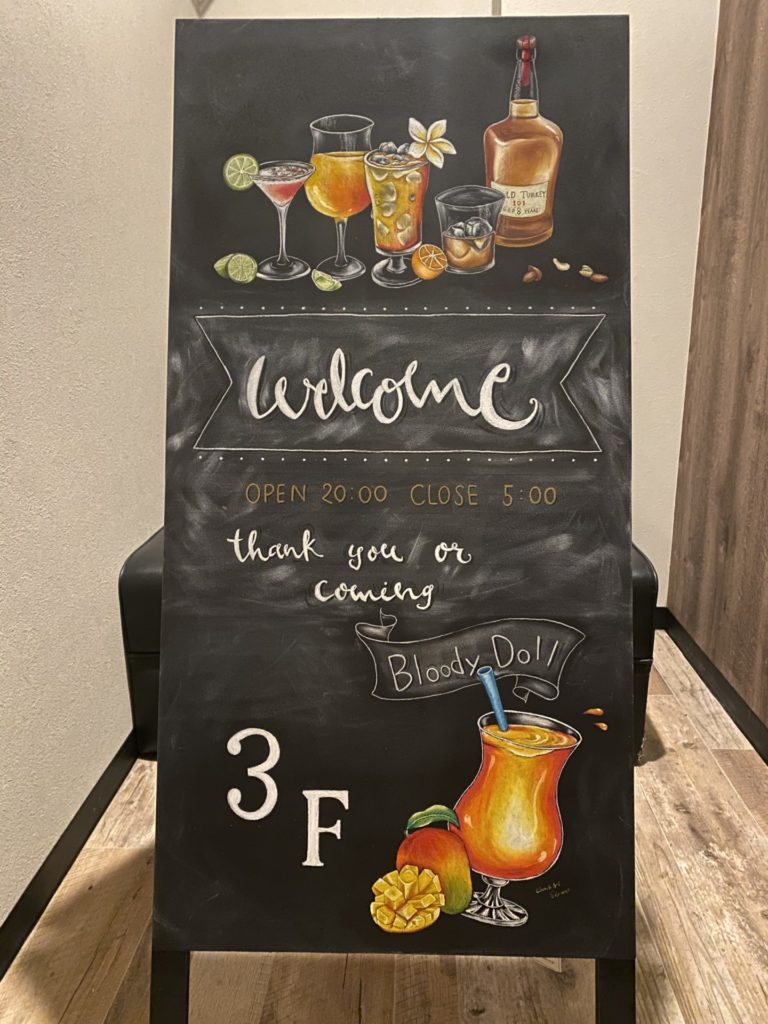 LD TURKEY
101
8 YEARS
welcome
OPEN 20:00 CLOSE 5:00
thank you or
coming
Bloody Doll
3F